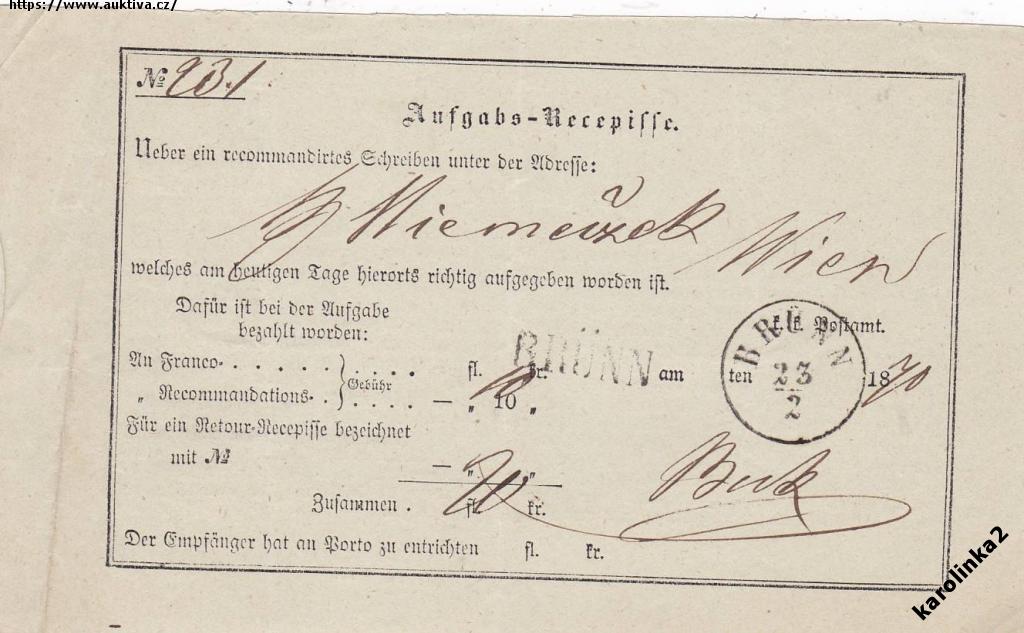 https://www.auktiva.cz/
№ 231
Aufgabs-Recepisse.
Ueber ein recommandirtes Schreiben unter der Adresse:
Wien
welches am heutigen Tage hierorts richtig aufgegeben worden ist.
Dafür ist bei der Aufgabe
bezahlt worden:
k.k. Postamt.
BRÜNN
23
2
An Franco- . . . . . . . . . . fl. kr. BRÜNN am ten 1870
Gebühr
„ Recommandations- . . . . . . — „ 10 „
Für ein Retour-Recepisse bezeichnet
mit № — „ „
Zusammen . fl. kr.
Der Empfänger hat an Porto zu entrichten fl. kr.
karolinka2